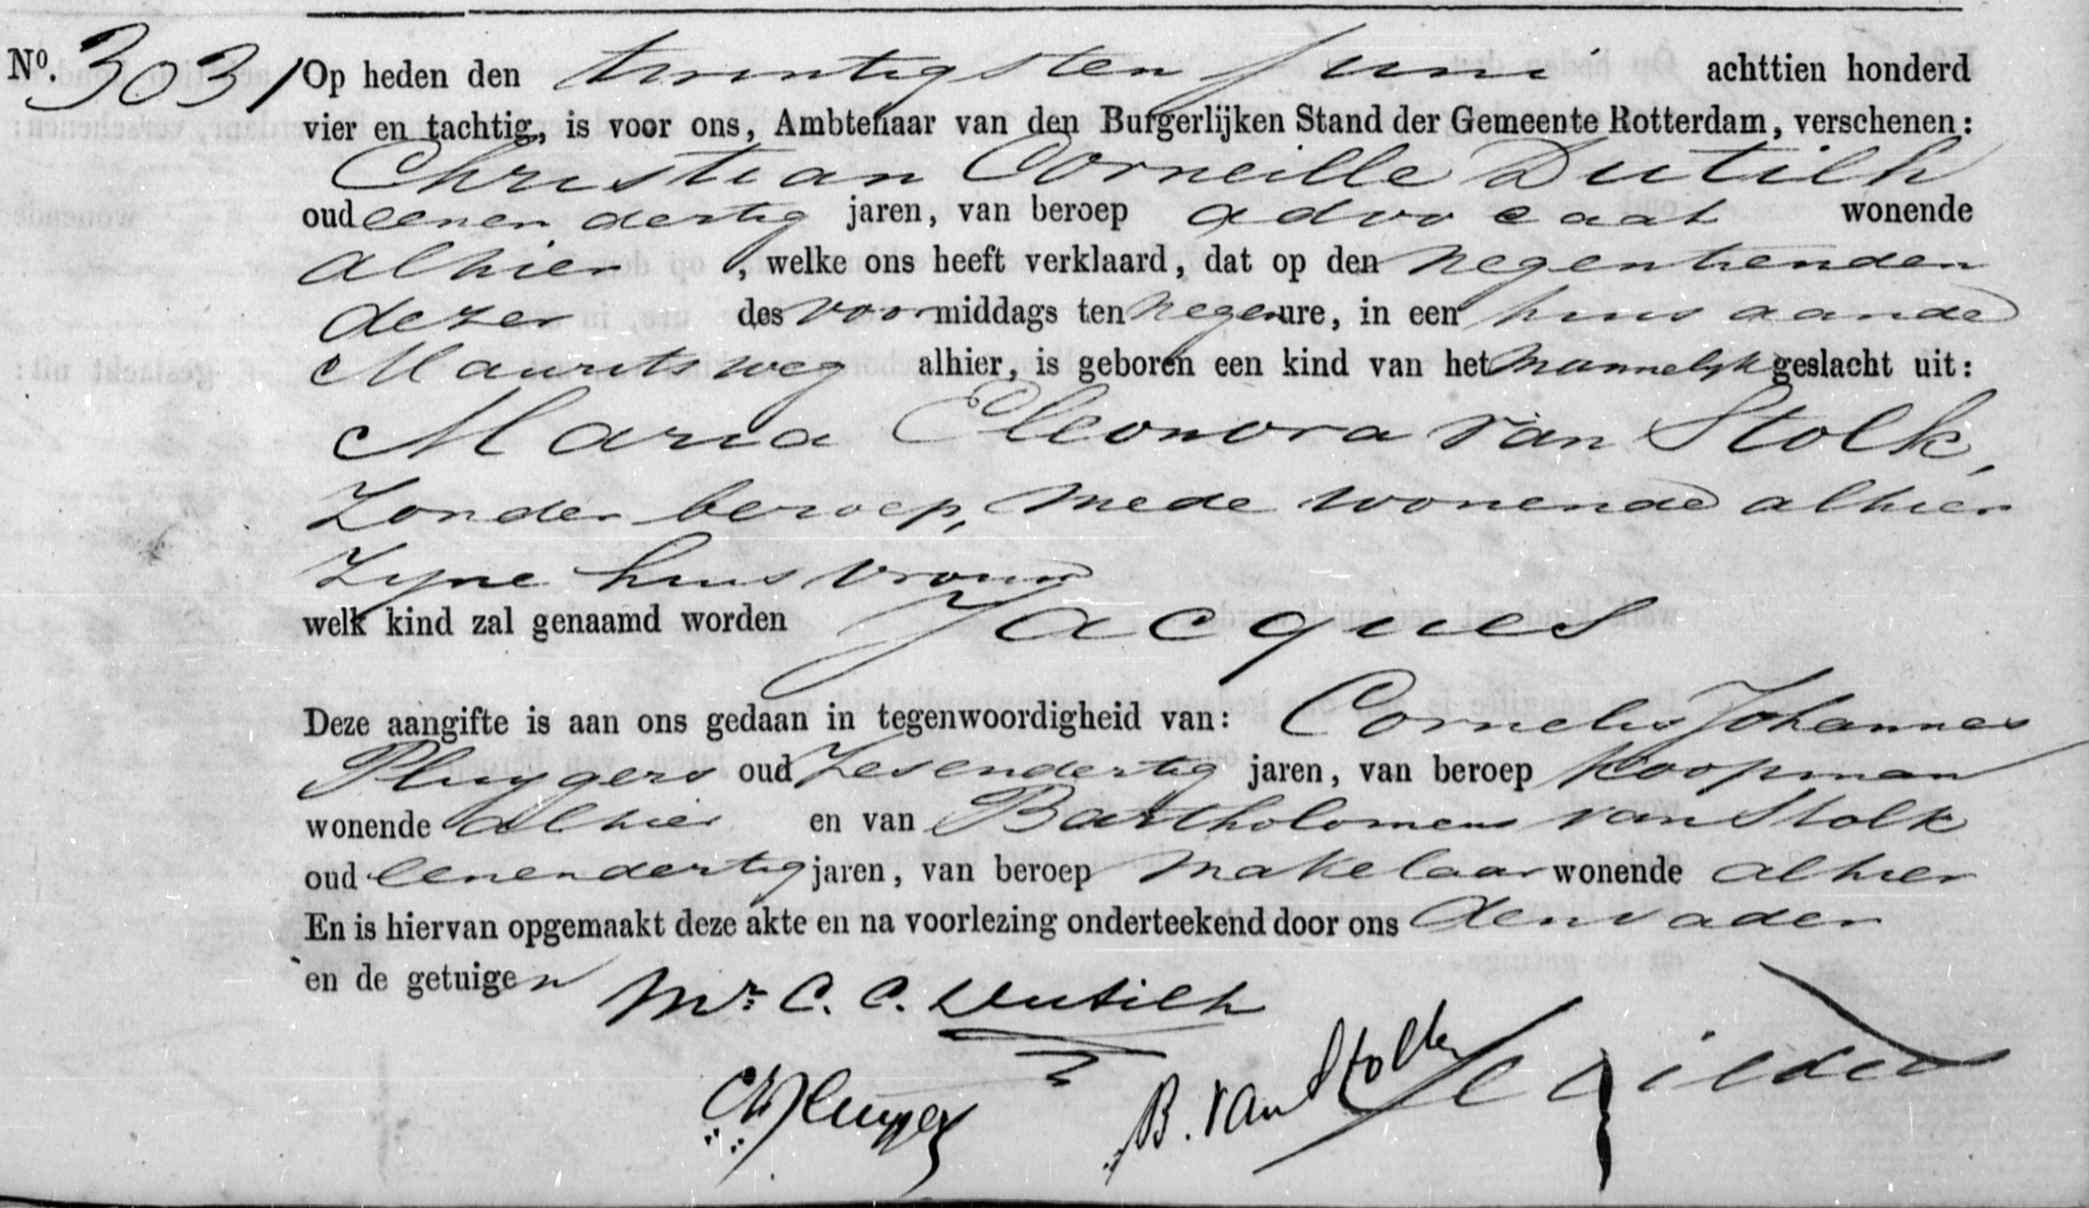 No. 3031 Op heden den twintigsten Juni achttien honderd
vier en tachtig, is voor ons, Ambtenaar van den Burgerlijken Stand der Gemeente Rotterdam, verschenen:
Christian Corneille Dutilh
oud eenendertig jaren, van beroep advocaat wonende
alhier, welke ons heeft verklaard, dat op den negentienden
dezer des voormiddags ten negen ure, in een huis aande
Mauritsweg alhier, is geboren een kind van het mannelijk geslacht uit:
Maria Eleonora van Stolk,
zonder beroep, mede wonende alhier
zyne huisvrouw
welk kind zal genaamd worden Jacques
Deze aangifte is aan ons gedaan in tegenwoordigheid van: Cornelis Johannes
Pluygers oud zesendertig jaren, van beroep koopman
wonende alhier en van Bartholomeus van Stolk
oud eenendertig jaren, van beroep makelaar wonende alhier
En is hiervan opgemaakt deze akte en na voorlezing onderteekend door ons den vader
en de getuigen
Mr. C. C. Dutilh
B. van Stolk